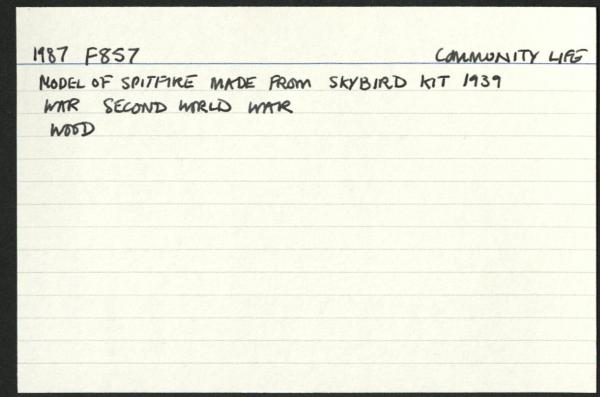 1987 F857 COMMUNITY LIFE
MODEL OF SPITFIRE MADE FROM SKYBIRD KIT 1939
WAR SECOND WORLD WAR
WOOD